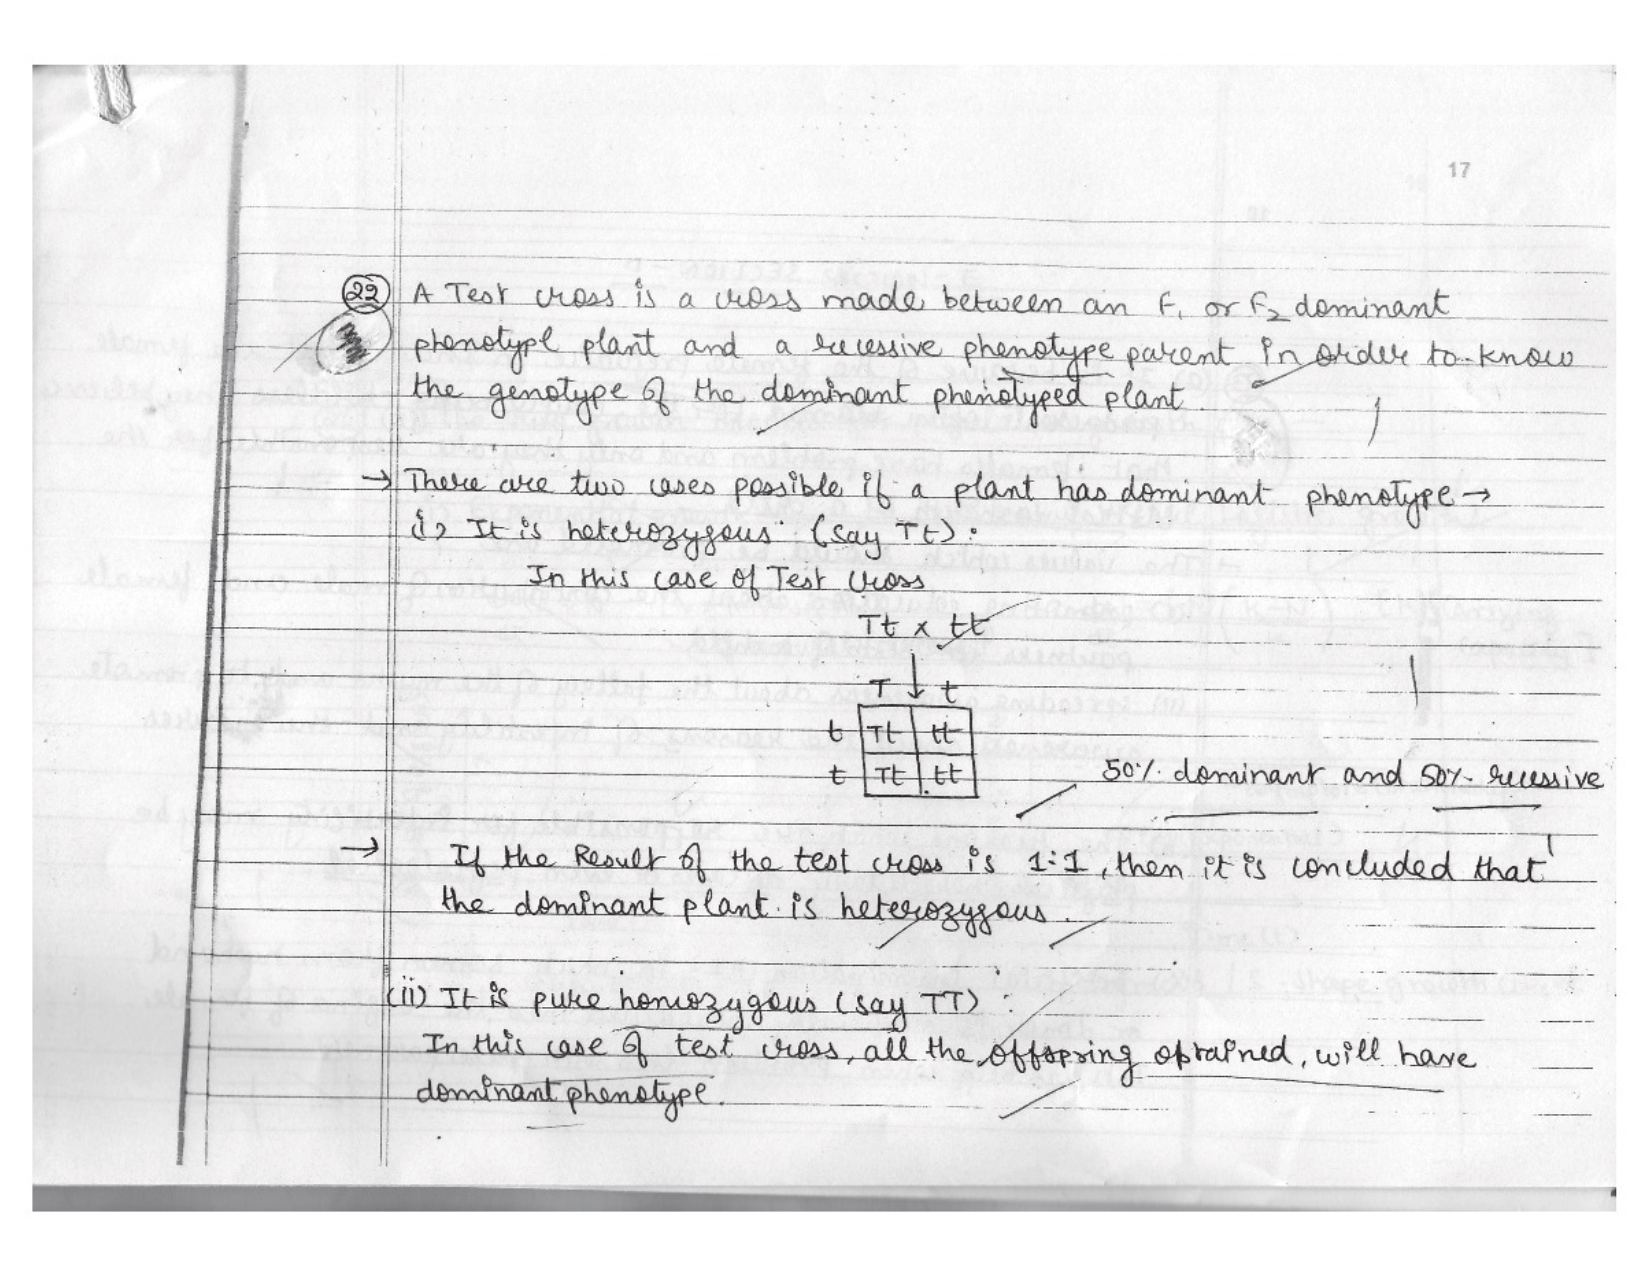 17
22 A Test cross is a cross made between an F1 or F2 dominant
phenotype plant and a recessive phenotype parent in order to know
the genotype of the dominant phenotyped plant.
→ There are two cases possible if a plant has dominant phenotype →
i) It is heterozygous (say Tt):
In this case of Test cross
Tt x tt
T ↓ t
t Tt tt
t Tt tt
50% dominant and 50% recessive
→ If the Result of the test cross is 1:1, then it is concluded that
the dominant plant is heterozygous.
(ii) It is pure homozygous (say TT):
In this case of test cross, all the offspring obtained, will have
dominant phenotype.